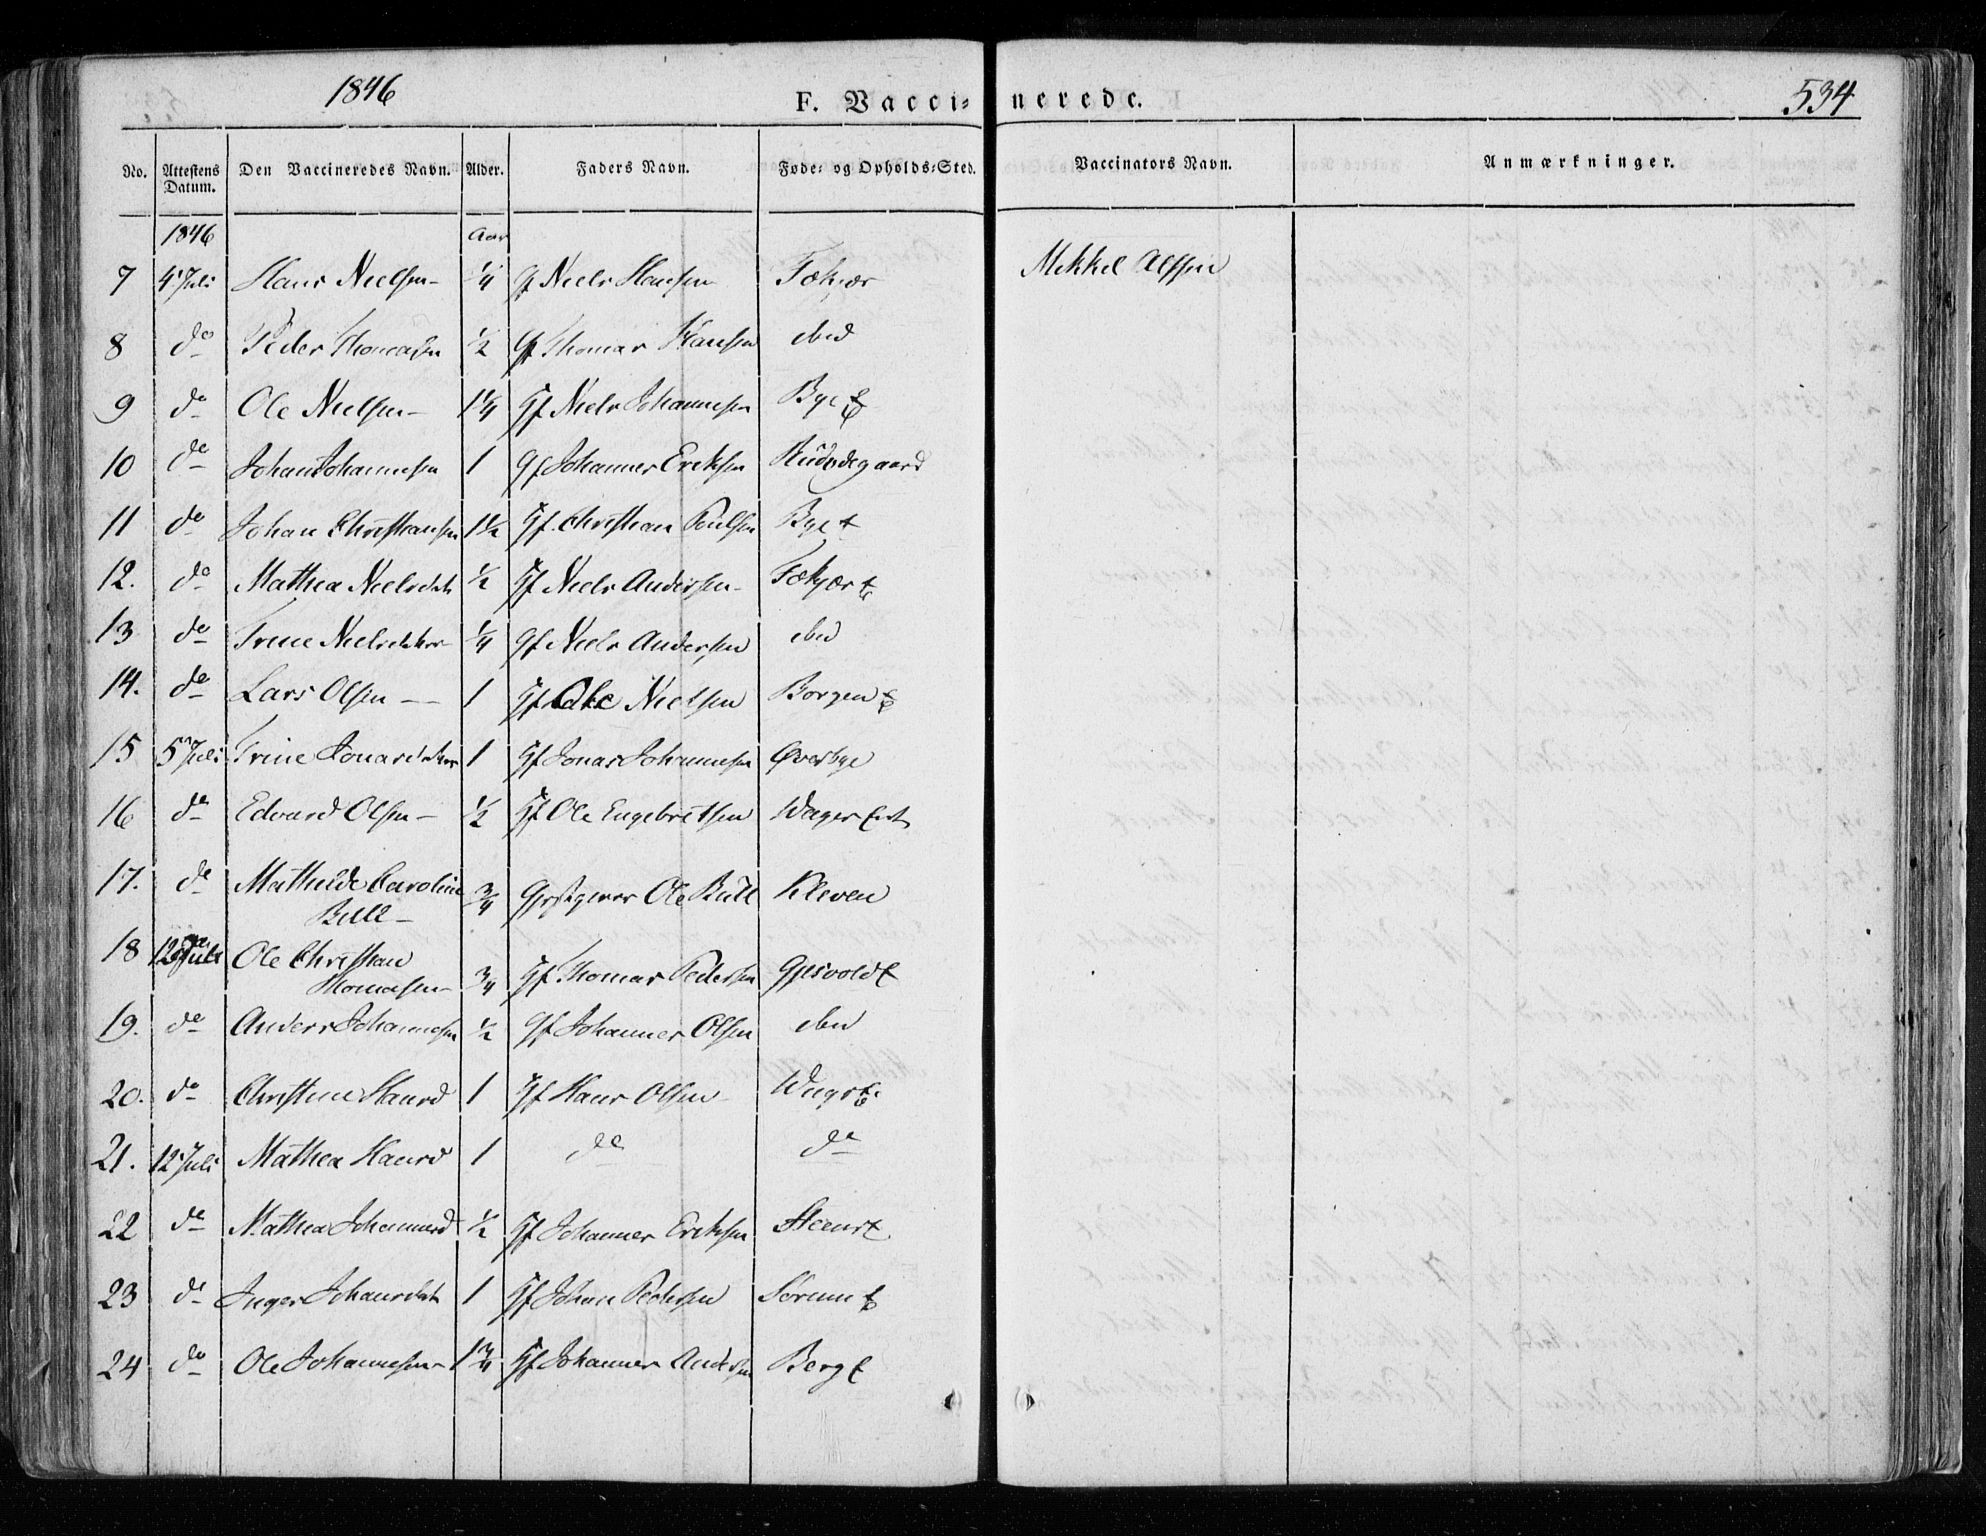 1846
F. Vaccinerede.
534
No. Attestens Datum. Den Vaccineredes Navn. Alder. Faders Navn. Føde- og Opholds-Sted. Vaccinators Navn. Anmærkninger.
1846 Aar
7 4 Juli Hans Nielsen 1/4 Gf Niels Hansen
8 do Peder Thomasen 1/2 Gf Thomas Hansen ibid
9 do Ole Nielsen 1 1/4 Gf Niels Johannesen Bye
10 do Johan Johannesen 1 Gf Johannes Eriksen
11 do Johan Christiansen 1 1/2 Gf Christian Poulsen Bye
12. do Mathea Nielsdtr 1/2 Gf Niels Andersen
13 do Trine Nielsdatter 1/4 Gf Niels Andersen ibid
14. do Lars Olsen 1 Gf Ole Nielsen Borgen
15 5 Juli Trine Jonasdatter 1 Gf Jonas Johannesen Overbye
16 do Edvard Olsen 1/2 Gf Ole Engebretsen
17. do Mathilde Caroline Bull 3/4 Gjestgiver Ole Bull Kleven
18 12 Juli Ole Christian Thomasen 3/4 Gf Thomas Pedersen
19. do Anders Johannesen 1/2 Gf Johannes Olsen ibid
20. do Christine Hansd 1 Gf Hans Olsen
21. 12 Juli Mathea Hansd 1 do do
22 do Mathea Johannesd 1/2 Gf Johannes Eriksen
23 do Inger Johansdtr 1 Gf Johan Pedersen
24 do Ole Johannesen 1 3/4 Gf Johannes Andersen Berg